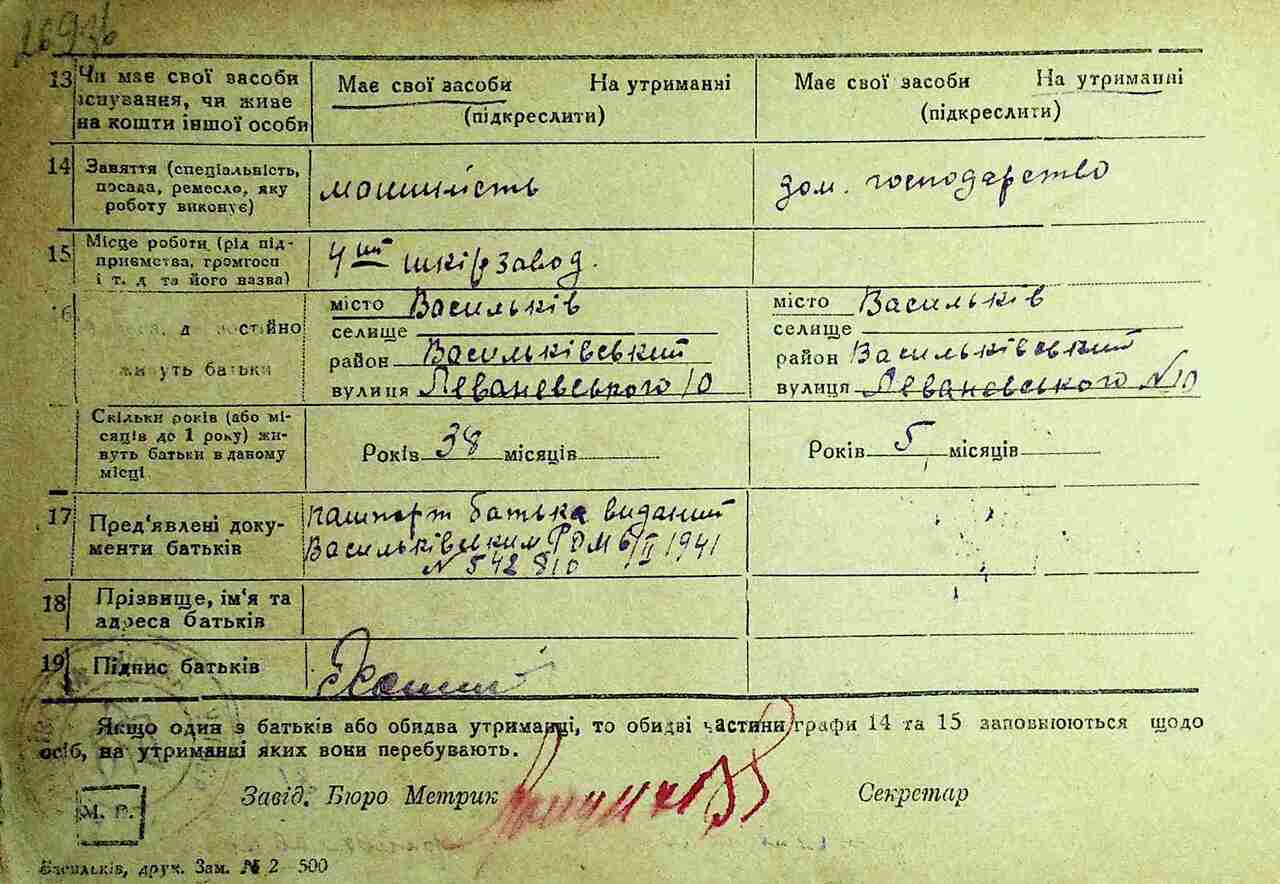 13 Чи має свої засоби
існування, чи живе
на кошти іншої особи
Має свої засоби На утриманні
(підкреслити)
Має свої засоби На утриманні
(підкреслити)
14 Заняття (спеціальність,
посада, ремесло, яку
роботу виконує)
машиність
дом. господарство
15 Місце роботи (рід під-
приємства, громгосп
і т. д та його назва)
4ий шкірзавод.
постійно
живуть батьки
місто Васильків
селище
район Васильківський
вулиця Леваневського 10
місто Васильків
селище
район Васильківський
вулиця Леваневського №10
Скільки років (або мі-
сяців до 1 року) жи-
вуть батьки в даному
місці
Років 38 місяців
Років 5 місяців
17 Пред'явлені доку-
менти батьків
пашпорт батька виданий
Васильківським РВМ 6/II 1941
N 542810
18 Прізвище, ім'я та
адреса батьків
19 Підпис батьків
Якщо один з батьків або обидва утриманці, то обидві частини графи 14 та 15 заповнюються щодо
осіб, на утриманні яких вони перебувають.
Завід. Бюро Метрик
Секретар
М. П.
Васильків, друк. Зам. № 2 500